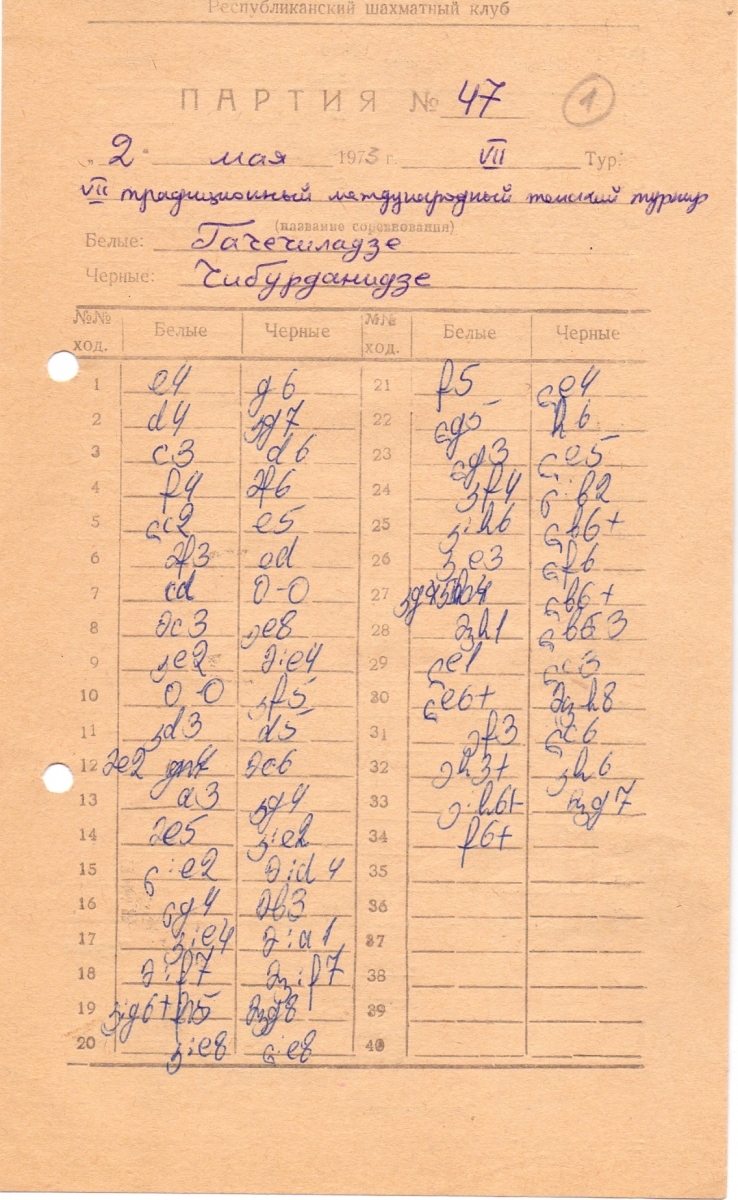 Республиканский шахматный клуб
ПАРТИЯ № 47 1
„2" мая 1973 г. VII Тур.
VII традиционный международный томский турнир
(название соревнования)
Белые: Гачечиладзе
Черные: Чибурданидзе
№№ ход. Белые Черные №№ ход. Белые Черные
1 e4 g6 21 f5 ლe4
2 d4 კg7 22 ლg5 h6
3 c3 d6 23 ლg3 ლe5
4 f4 მf6 24 კf4 ლ:b2
5 ლc2 e5 25 კ:h6 ლb6+
6 მf3 ed 26 კe3 ლf6
7 cd 0-0 27 კd4 ლb6+
8 მc3 ეe8 28 მეh1 ლb3
9 კe2 მ:e4 29 ლe1 ლc3
10 0-0 კf5 30 ლe6+ მეh8
11 კd3 d5 31 ეf3 ლc6
12 მe2 მc6 32 ეh3+ კh6
13 a3 კg4 33 ე:h6+ მეg7
14 მe5 კ:e2 34 f6+
15 ლ:e2 მ:d4 35
16 ლg4 მb3 36
17 კ:e4 მ:a1 37
18 მ:f7 მე:f7 38
19 კ:g6+ მეg8 39
20 კ:e8 ლ:e8 40